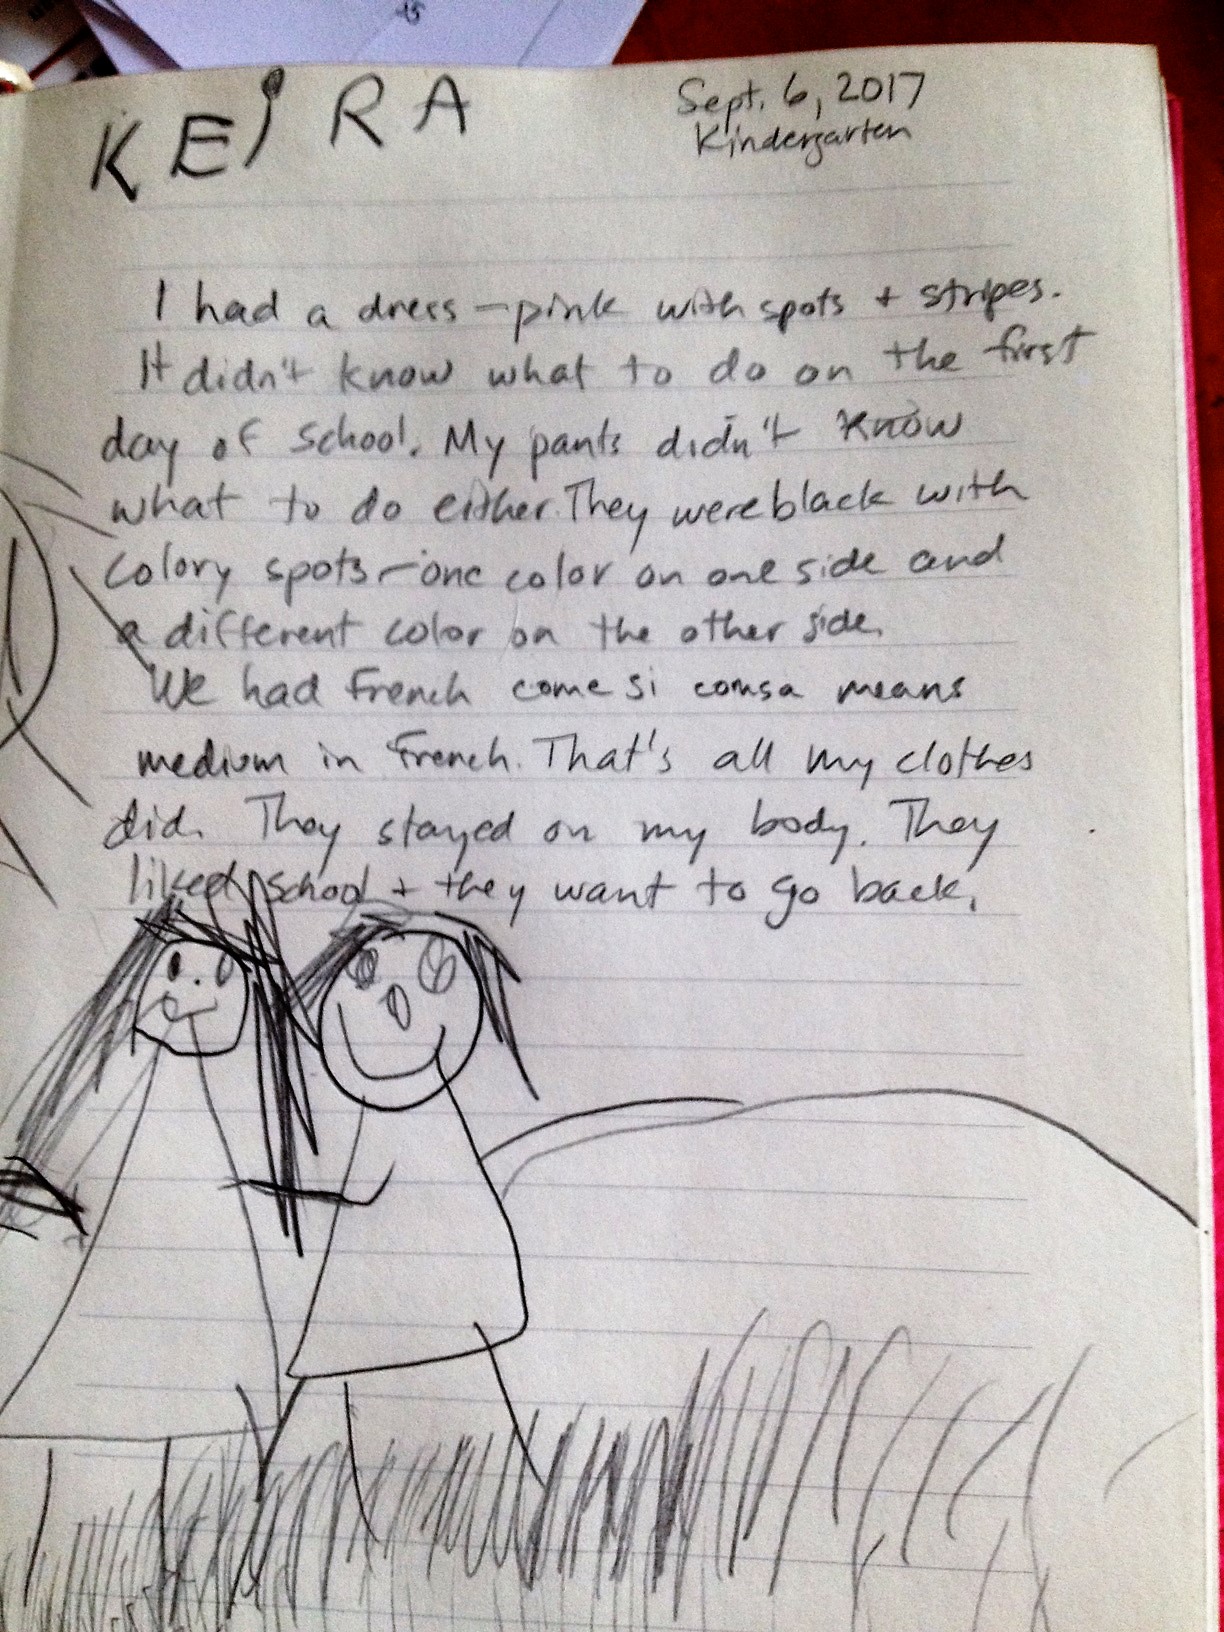 KEiRA
Sept. 6, 2017
Kindergarten
I had a dress - pink with spots + stripes.
It didn't know what to do on the first
day of school. My pants didn't know
what to do either. They were black with
colory spots - one color on one side and
a different color on the other side.
We had French come si comsa means
medium in French. That's all my clothes
did. They stayed on my body. They
liked school + they want to go back.